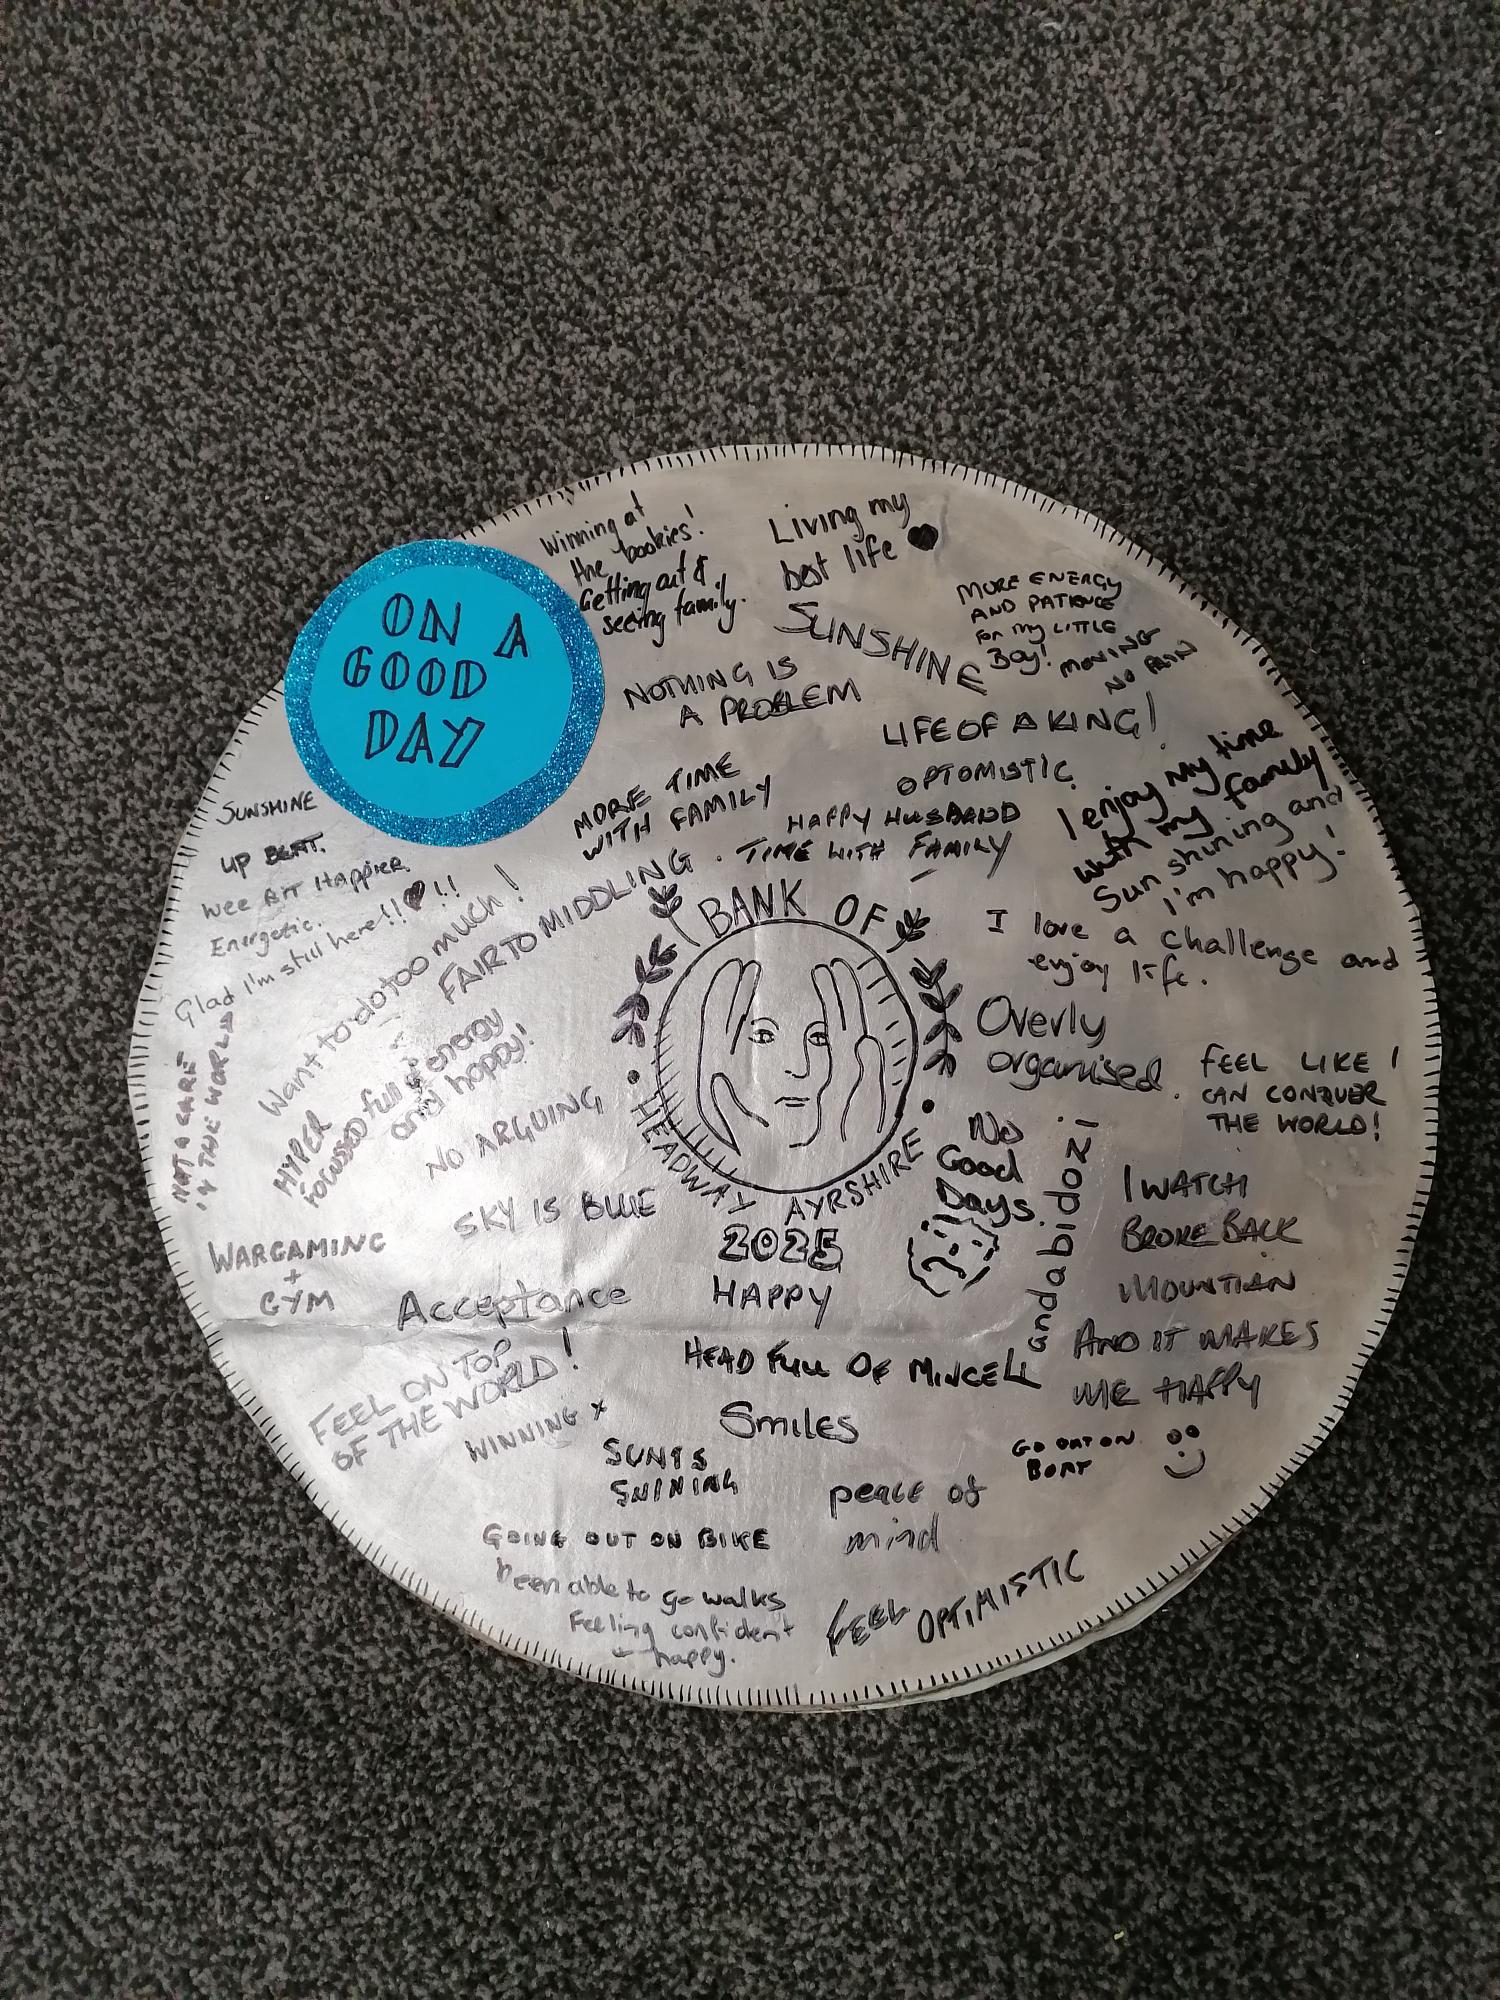 ON A
GOOD
DAY
Winning at
the bookies!
Getting out &
seeing family.
Living my
best life
SUNSHINE
MORE ENERGY
AND PATIENCE
FOR MY LITTLE
BOY!
MOVING
NO PAIN
NOTHING IS
A PROBLEM
LIFE OF A KING!
OPTOMISTIC
MORE TIME
WITH FAMILY
HAPPY HUSBAND
TIME WITH FAMILY
I enjoy my time
with my family
Sun shining and
I'm happy!
SUNSHINE
UP BEAT.
WEE BIT HAPPIER
Energetic.
Glad I'm still here!!! !!
Want to do too much!
FAIR TO MIDDLING
BANK OF
HEADWAY AYRSHIRE
2025
I love a challenge and
enjoy life.
Overly
organised
FEEL LIKE I
CAN CONQUER
THE WORLD!
NOT A CARE
IN THE WORLD
HYPER
FOCUSSED full of energy
and happy!
NO ARGUING
SKY IS BLUE
No
Good
Days
andabidozi
I WATCH
BROKE BACK
MOUNTIAN
AND IT MAKES
ME HAPPY
WARGAMING
+
GYM
Acceptance
HAPPY
HEAD FULL OF MINCE
FEEL ON TOP
OF THE WORLD!
WINNING
Smiles
SUN IS
SHINING
peace of
mind
GO OUT ON
BOAT
GOING OUT ON BIKE
been able to go walks
Feeling confident
happy.
FEEL OPTIMISTIC